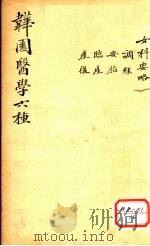 女科要略
調經
安胎
臨産
産後
韡園醫學六種